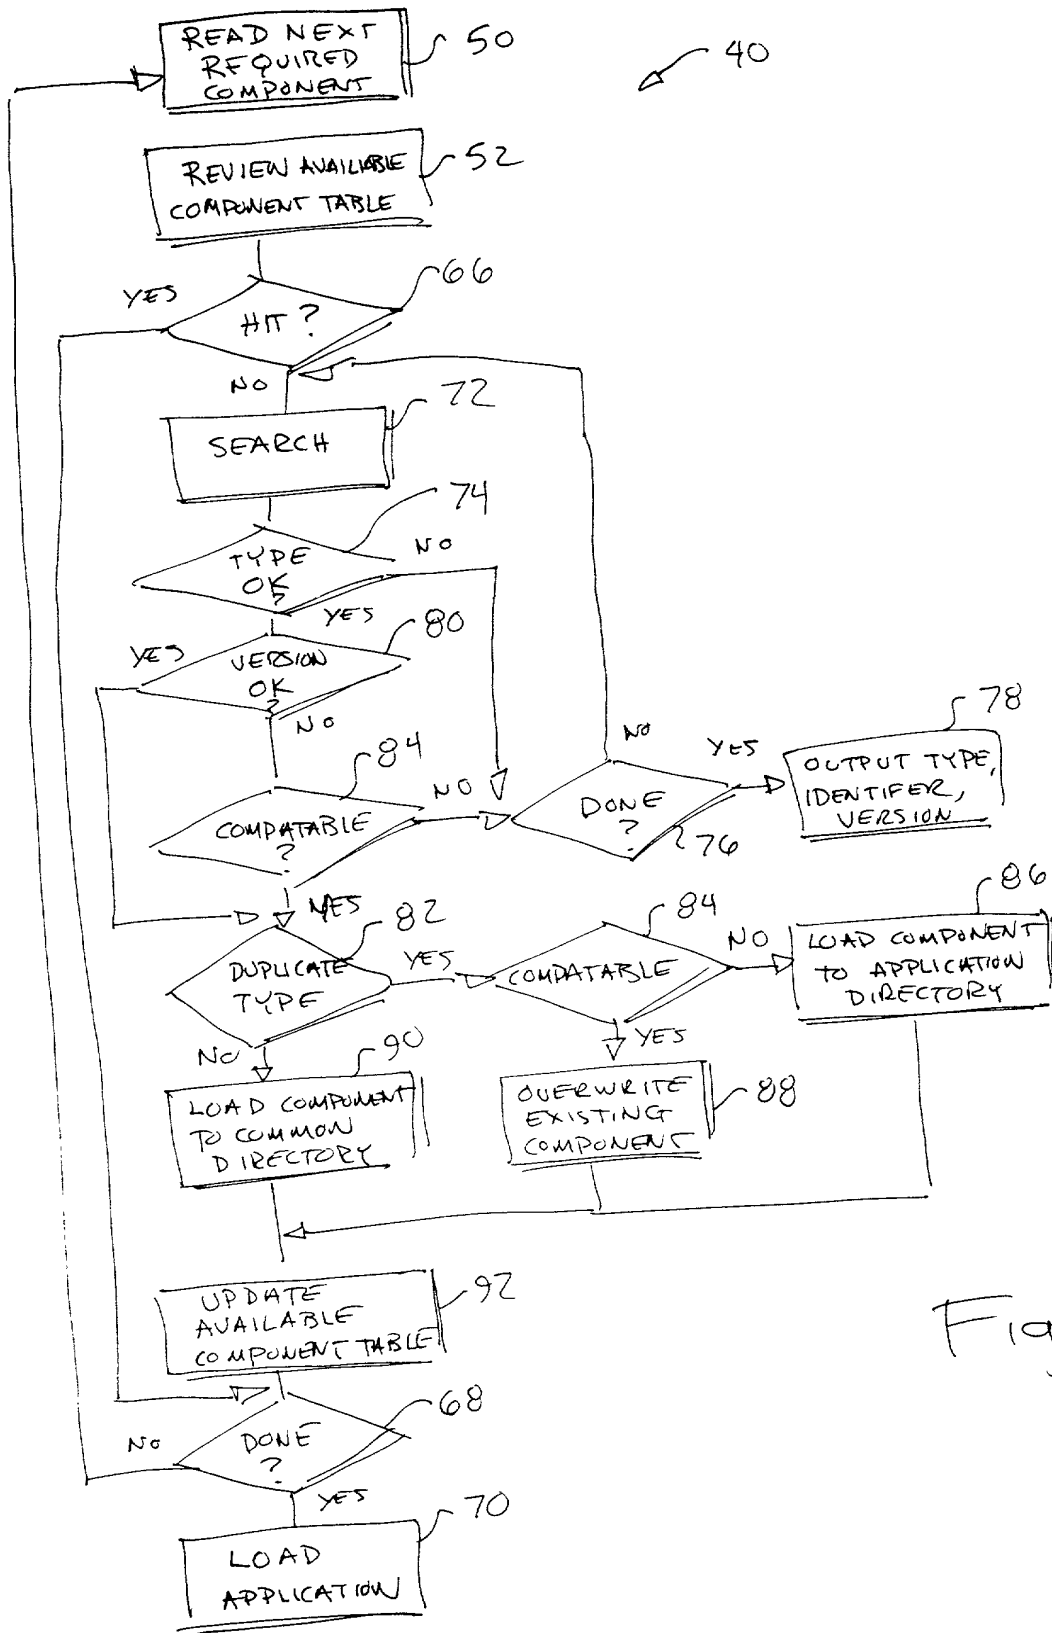 READ NEXT
REQUIRED
COMPONENT
50
40
REVIEW AVAILIABLE
COMPONENT TABLE
52
66
YES
HIT ?
NO
72
SEARCH
74
TYPE
OK
?
NO
YES
80
YES
VERSION
OK
?
NO
84
COMPATABLE
?
NO
NO
DONE
?
76
YES
78
OUTPUT TYPE,
IDENTIFER,
VERSION
YES
82
DUPLICATE
TYPE
YES
84
COMPATABLE
NO
86
LOAD COMPONENT
TO APPLICATION
DIRECTORY
NO
90
LOAD COMPONENT
TO COMMON
DIRECTORY
YES
OVERWRITE
EXISTING
COMPONENT
88
UPDATE
AVAILABLE
COMPONENT TABLE
92
68
NO
DONE
?
YES
70
LOAD
APPLICATION